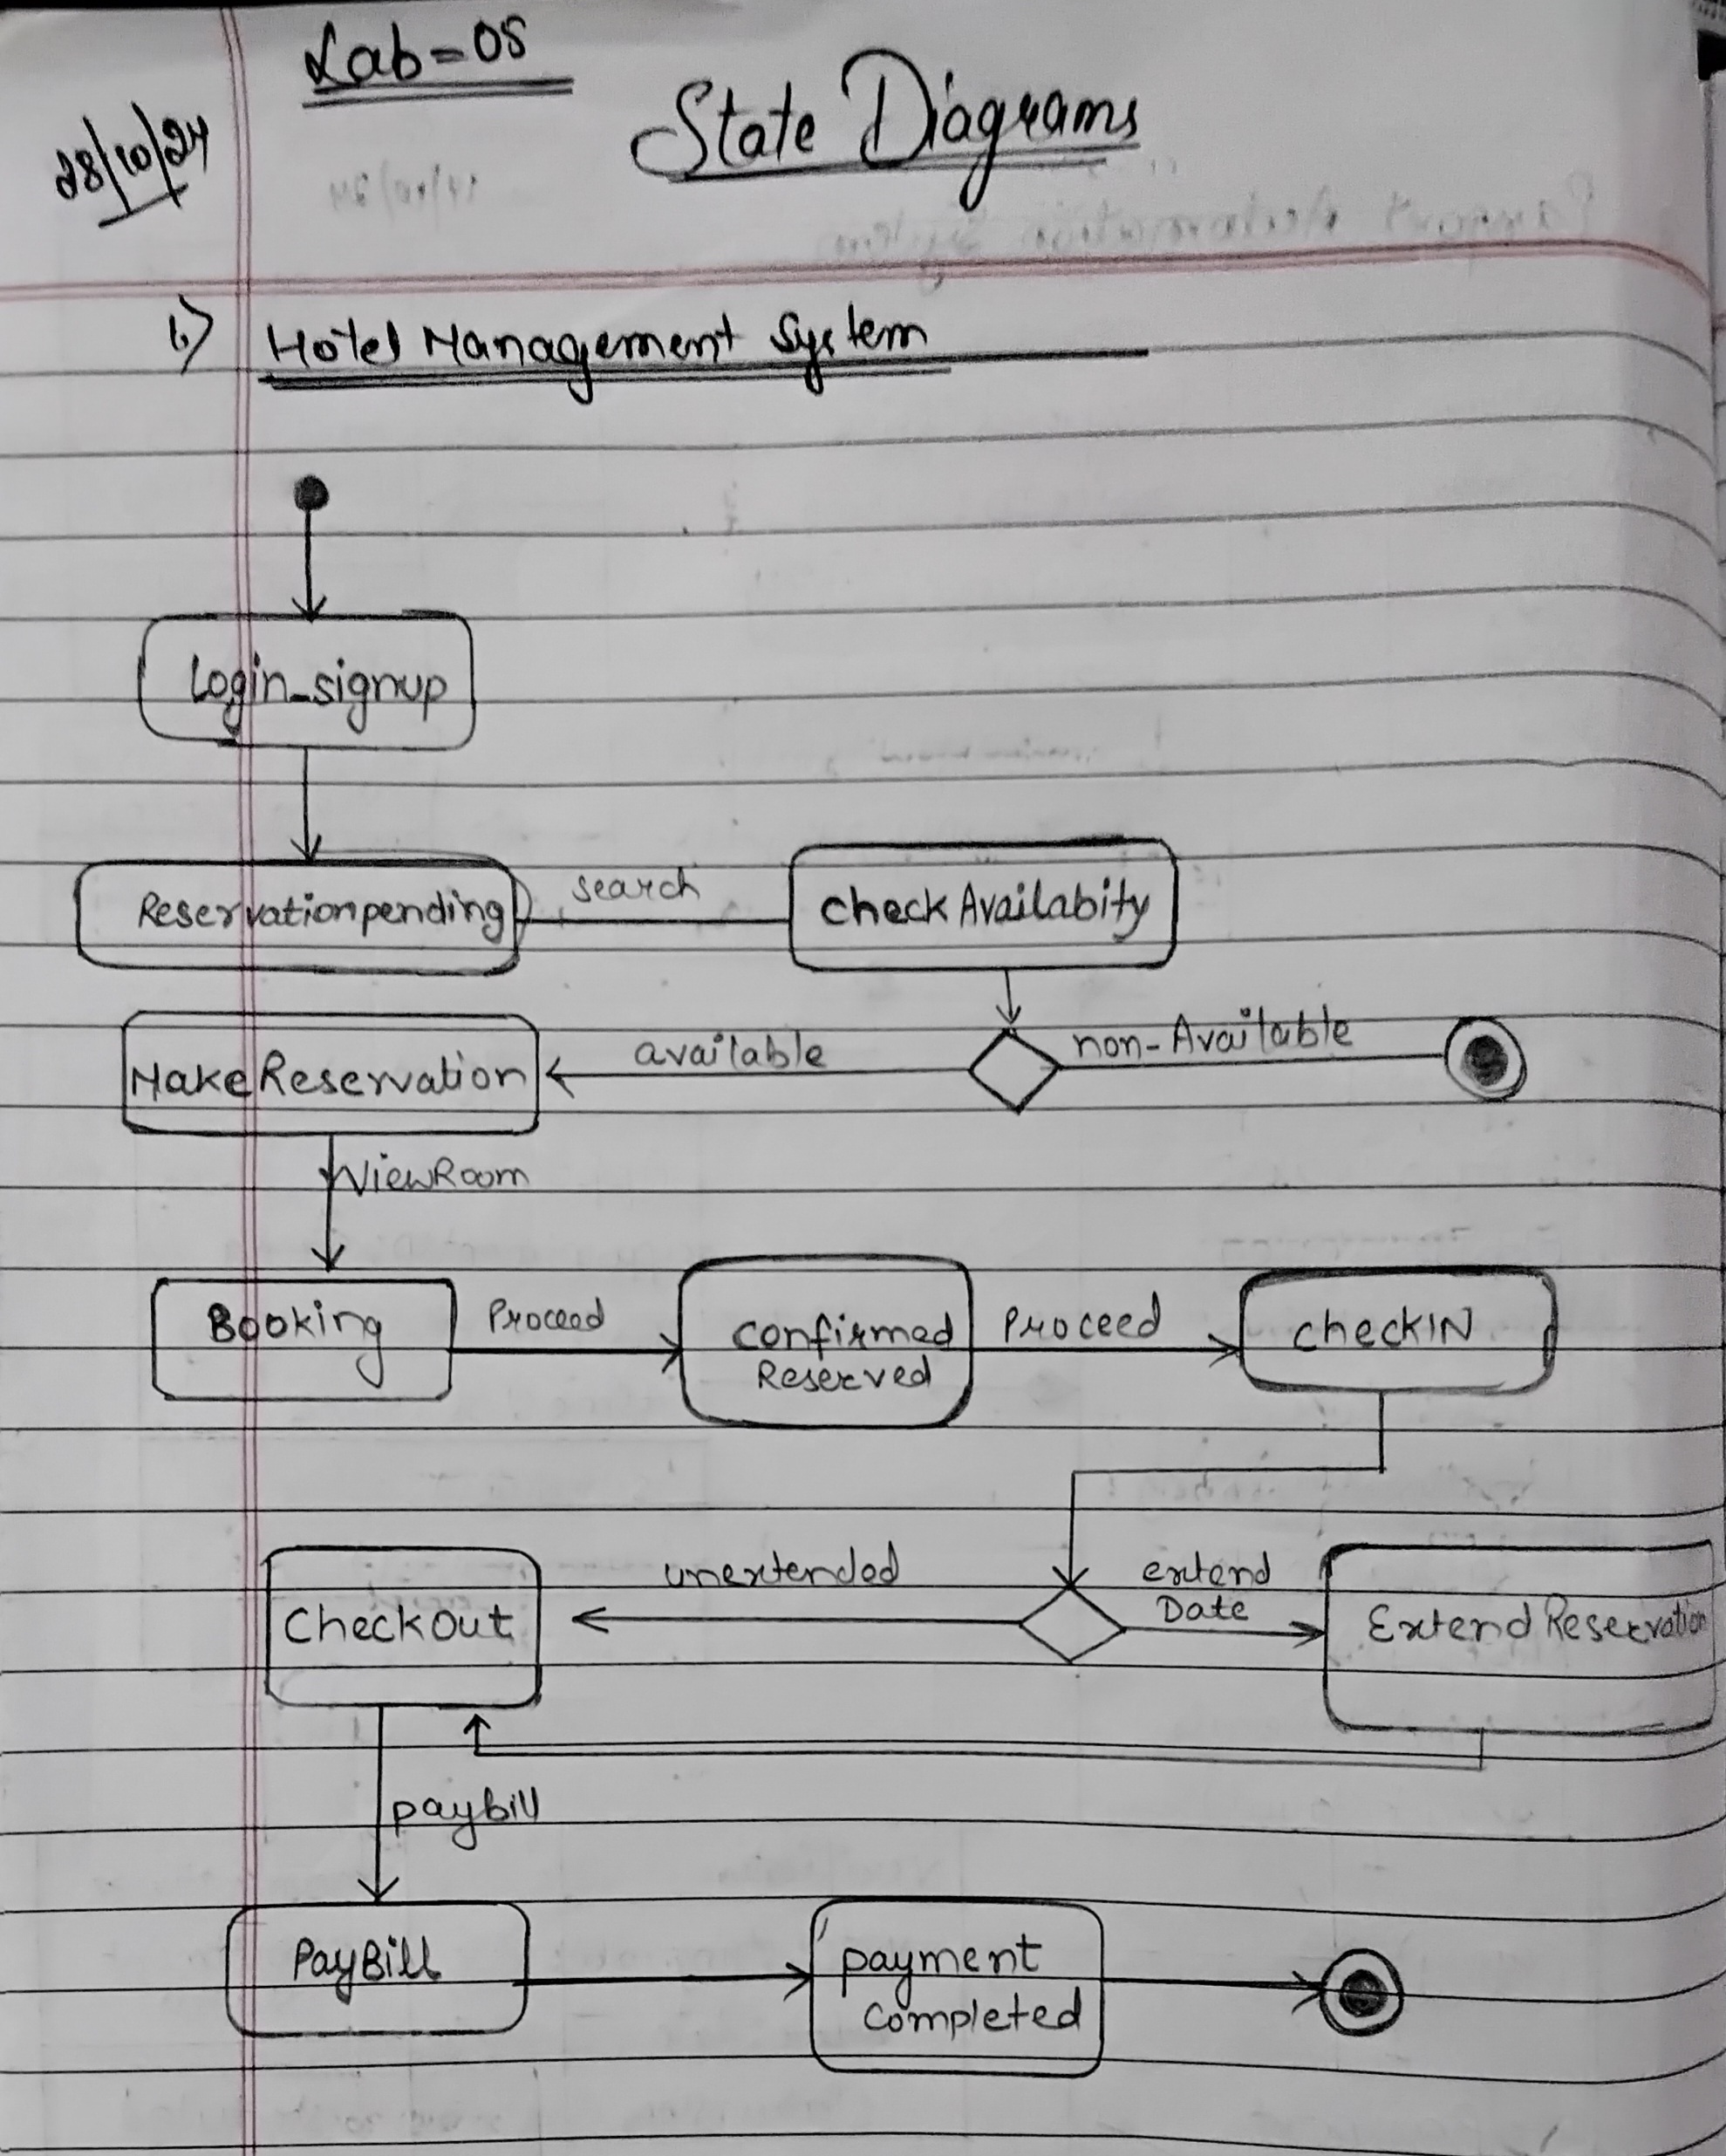 Lab=05
28/10/24
State Diagrams
1.) Hotel Management System
Login_signup
Reservationpending search checkAvailabity
MakeReservation available non-Available
ViewRoom
Booking Proceed confirmed Reserved Proceed checkIN
Checkout unextended extend Date Extend Reservation
paybill
PayBill payment completed